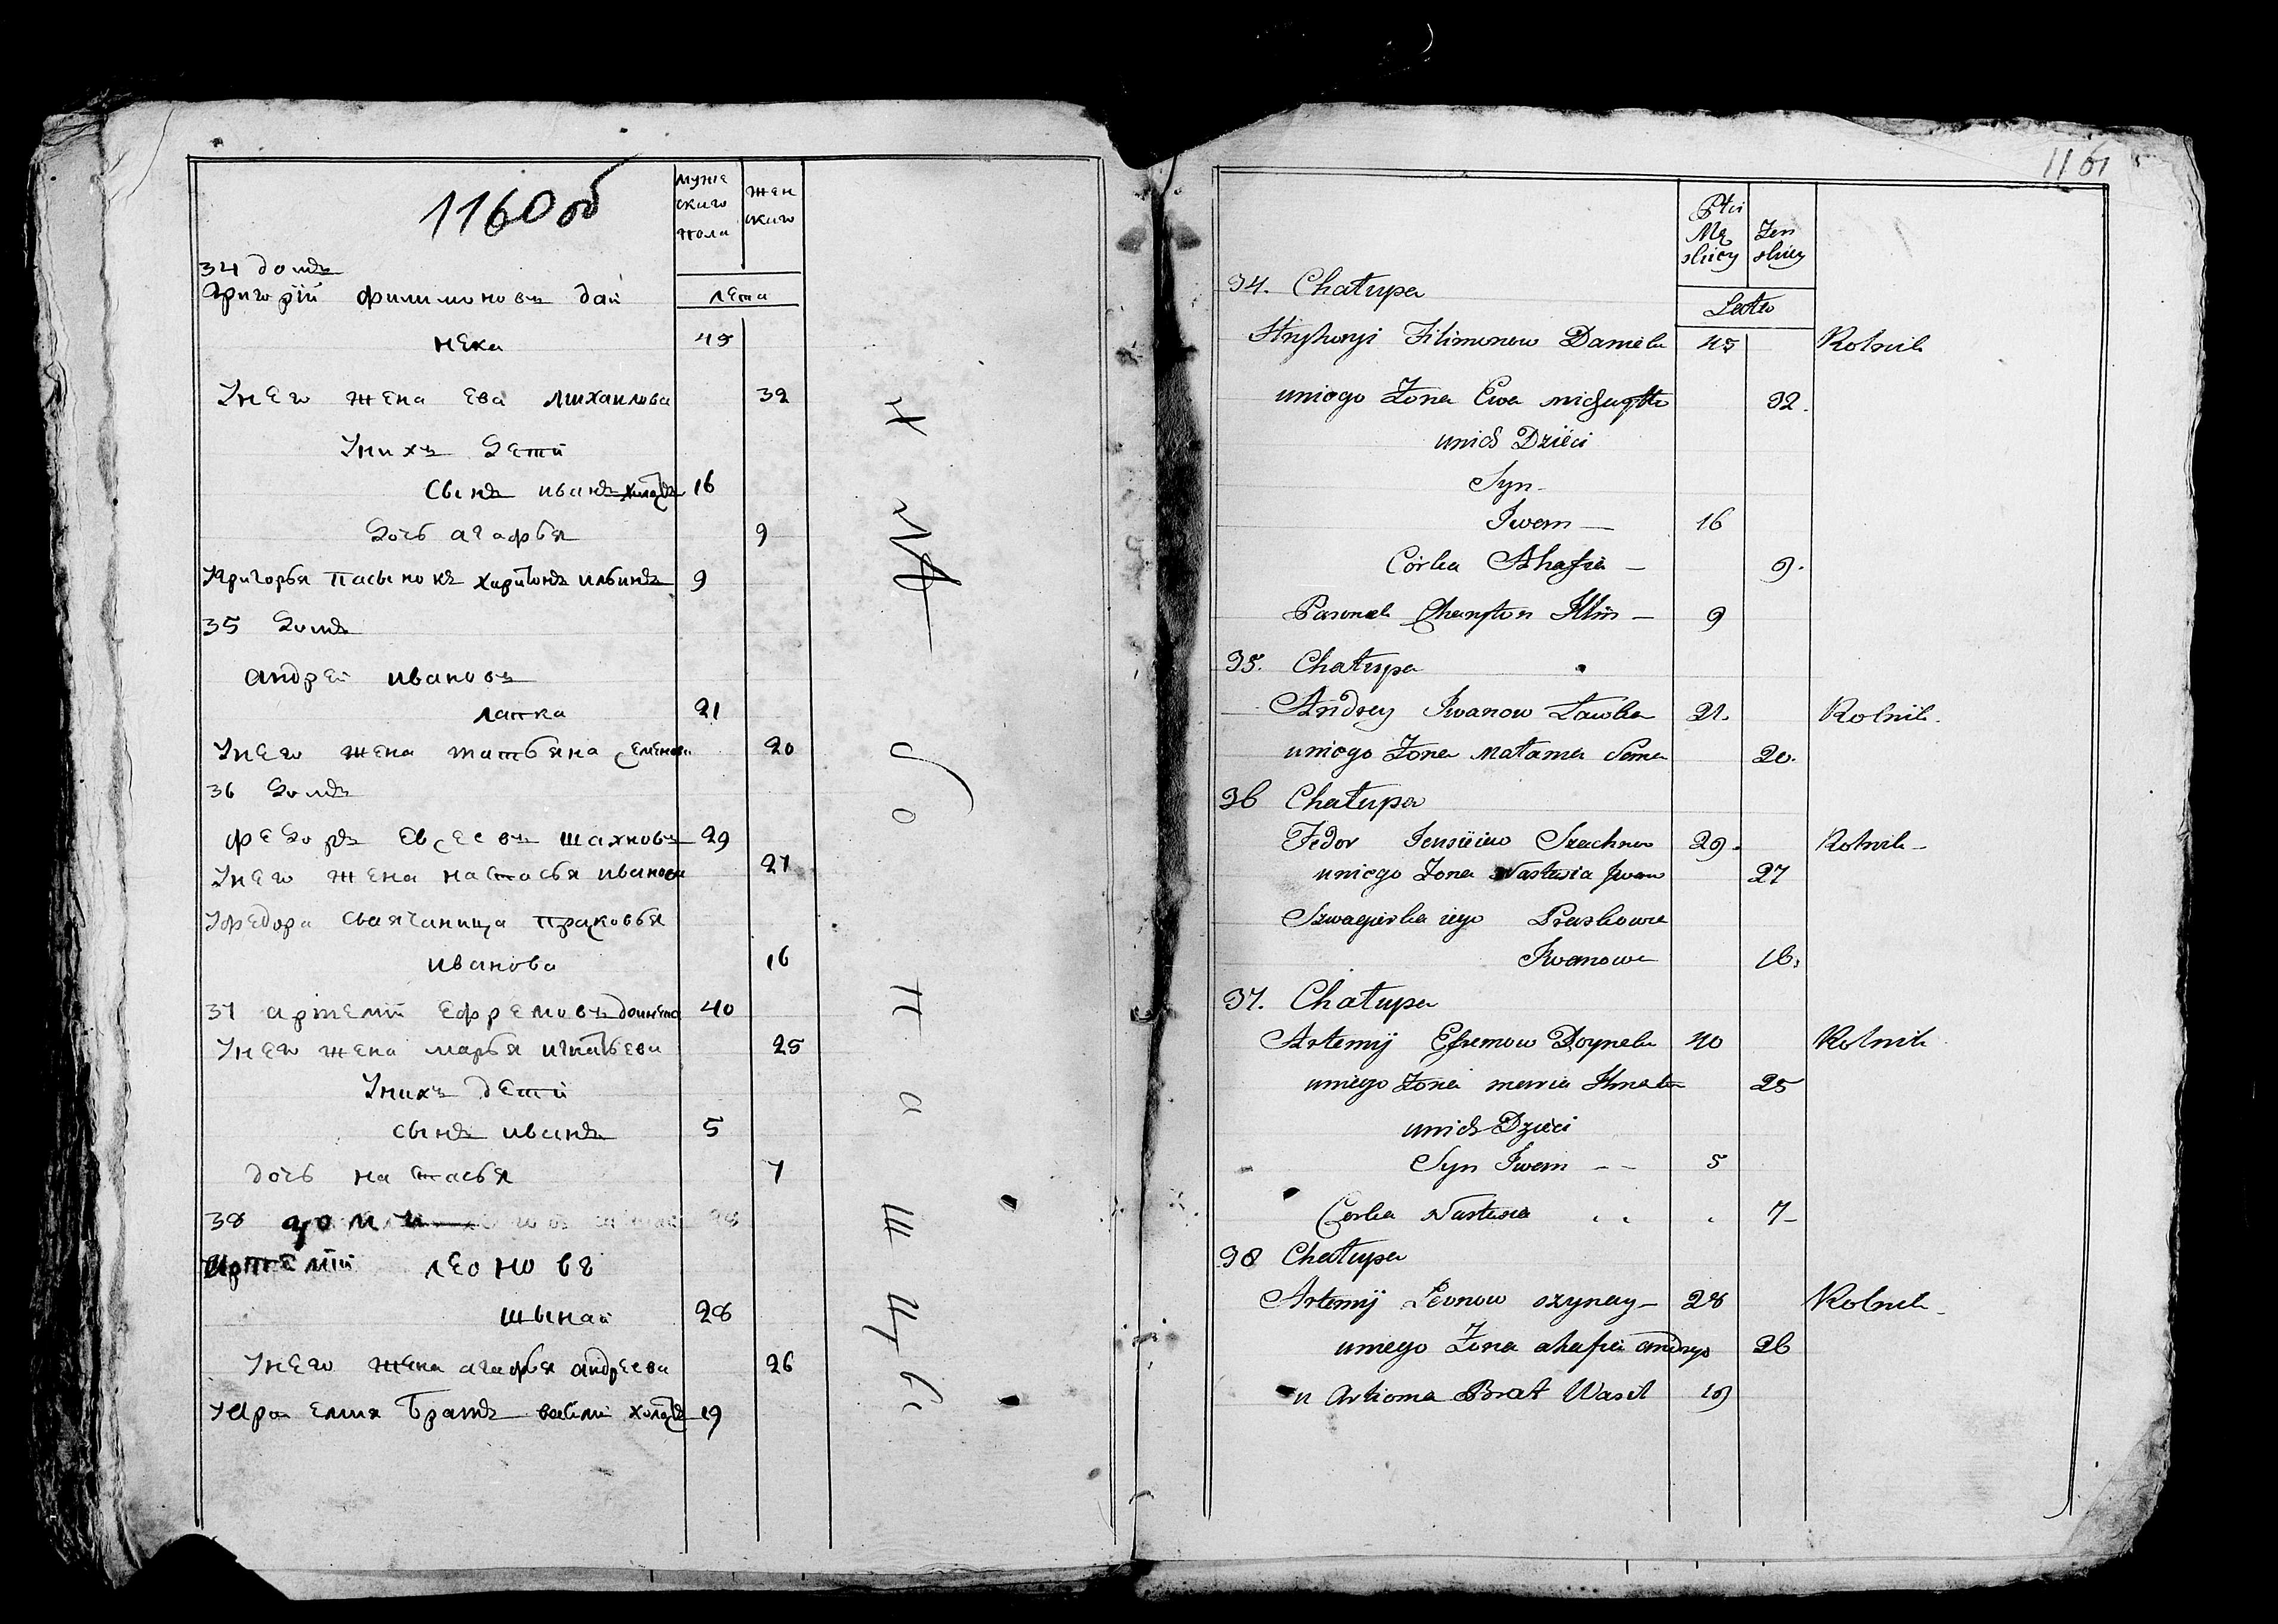 1160 об
муже
ского
пола
жен
ского
лета
34 домъ
Григорій Филимоновъ Дай
нека 45
Унего жена Ева Михаилова 32
Унихъ дети
сынъ Иванъ холостъ 16
дочь Агафья 9
УГригорья пасынокъ Харитонъ Ильинъ 9
35 домъ
Андрей Ивановъ
Лапка 21
Унего жена Татьяна Семенова 20
36 домъ
Федоръ Евсеевъ Шахновъ 29
Унего жена Настасья Иванова 27
УФедора своячаница Прасковья
Иванова 16
37 Артемій Ефремовъ Дойнека 40
Унего жена Марья Игнатьева 25
Унихъ дети
сынъ Иванъ 5
дочь Настасья 7
38 домъ
Артемій Леоновъ
Шынай 28
Унего жена Агафья Андреева 26
УАртемия братъ Василій холостъ 19
х л е б о п а ш ц ы
1161
Płci
Mę
skiey
Żen
skiey
Lata
34. Chałupa
Hryhoryi Filimonow Daineka 45 Rolnik
uniego Żona Ewa Michayło 32.
unich Dzieci
Syn
Iwan 16
Córka Ahafia 9.
Pasonek Charyton Illin 9
35. Chałupa
Andrey Iwanow Lawka 21. Rolnik.
uniego Żona Matama Sema 20.
36 Chałupa
Fedor Jewsieiew Szachnow 29. Rolnik
uniego Żona Nastasia Iwan 27
Szwagierka iego Praskowia
Iwanowa 16.
37. Chałupa
Artemij Efremow Doyneka 40 Rolnik
uniego Żona maria Hnata 25
unich Dzieci
Syn Iwan 5
Corka Nastasia 7
38 Chałupa
Artemij Leonow szynay 28 Rolnik
uniego Żona ahafia andryo 26
u Artioma Brat Wasil 19